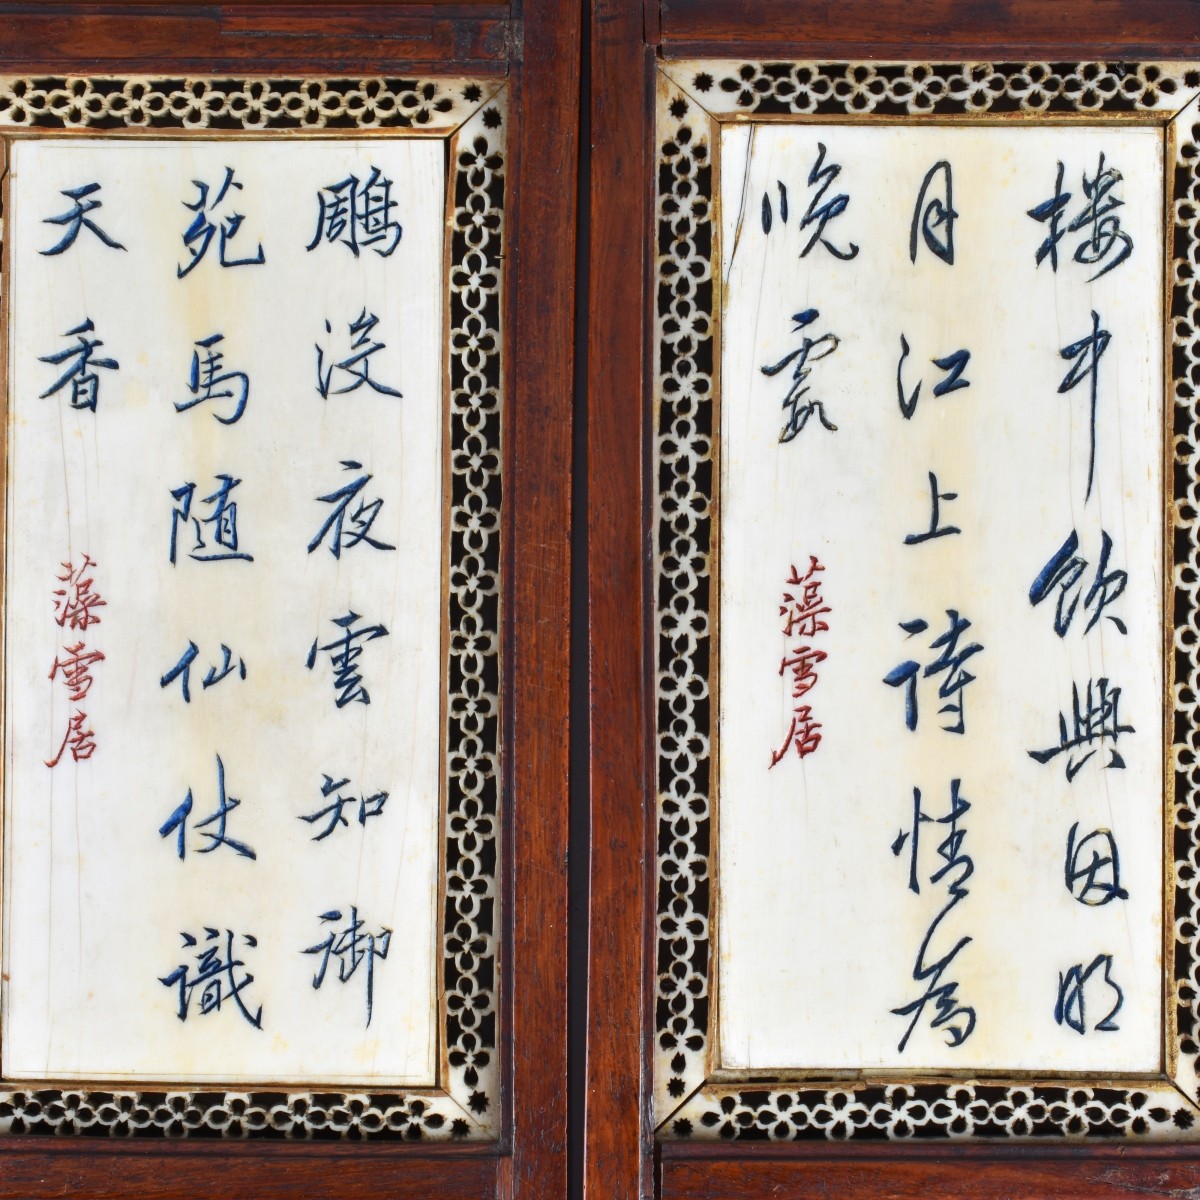 楼中飲興因明
月江上詩情為
晚霞
藻雪居
鵰没夜雲知御
苑馬随仙仗識
天香
藻雪居